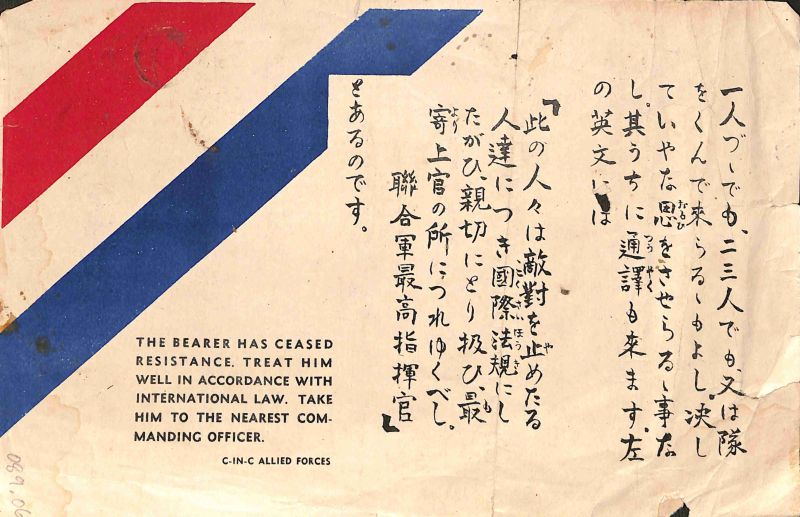 一人づゝでも、二三人でも、又は隊
をくんで来らるゝもよし。決し
ていやな思をさせらるゝ事な
し。其うちに通譯も来ます。左
の英文には
「此の人々は敵對を止めたる
人達につき國際法規にし
たがひ、親切にとり扱ひ、最
寄上官の所につれゆくべし。
聯合軍最高指揮官」
とあるのです。
THE BEARER HAS CEASED
RESISTANCE. TREAT HIM
WELL IN ACCORDANCE WITH
INTERNATIONAL LAW. TAKE
HIM TO THE NEAREST COM-
MANDING OFFICER.
C-IN-C ALLIED FORCES
089.06